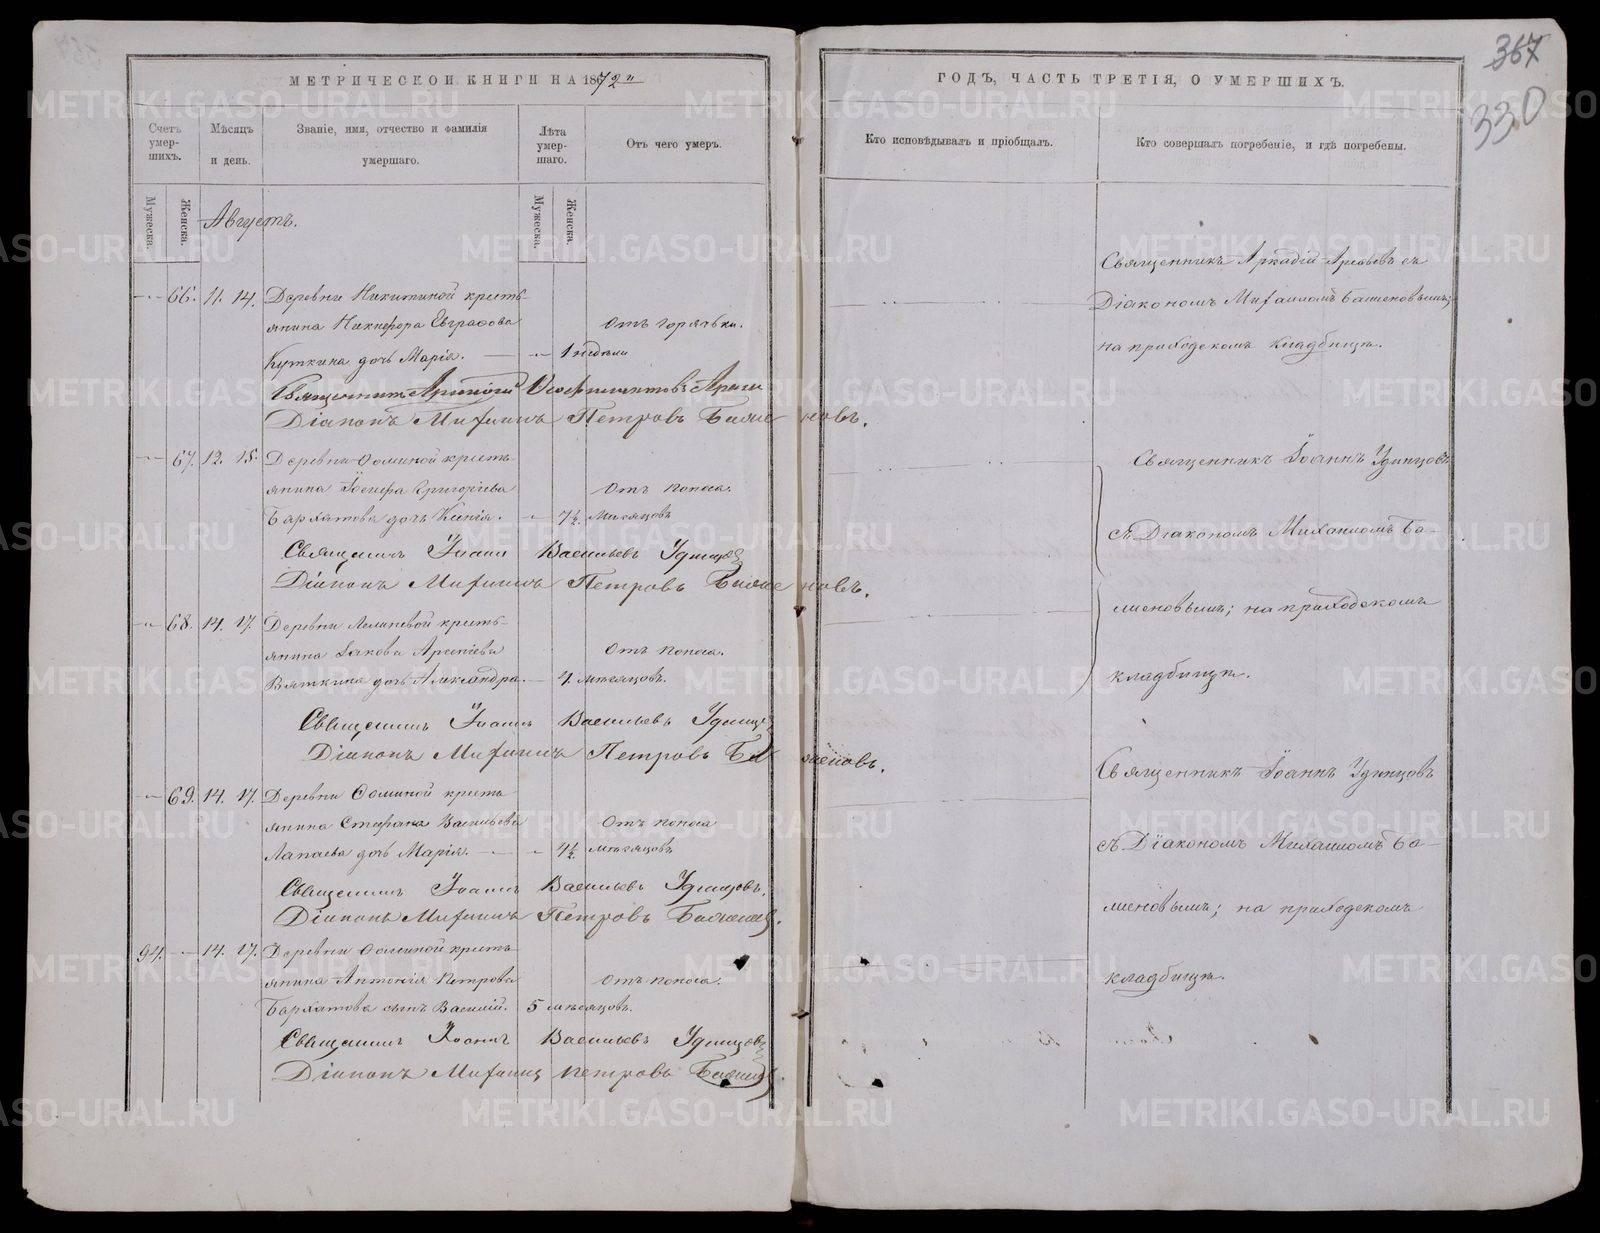 МЕТРИЧЕСКОЙ КНИГИ НА 1872"
Счетъ умер-шихъ.
Мѣсяцъ и день.
Званіе, имя, отчество и фамилія умершаго.
Лѣта умер-шаго.
Отъ чего умеръ.
Мужеска.
Женска.
Мужеска.
Женска.
Августъ.
66. 11. 14. Деревни Никитиной кресть-
янина Никифора Евграфова Отъ горячки.
Куткина дочь Марія. 1 недѣли
Священникъ
Діаконъ Михаилъ Петровъ
67. 12. 15. Деревни Ѳоминой кресть-
янина Іосифа Григоріева Отъ поноса.
Бархатова дочь Ксенія. 7½ мѣсяцовъ
Священникъ Іоаннъ Васильевъ Удинцовъ
Діаконъ Михаилъ Петровъ
68. 14. 17. Деревни кресть-
янина Іакова Арсеніева Отъ поноса.
Вяткина дочь Александра. 4. мѣсяцовъ.
Священникъ Іоаннъ Васильевъ Удинцо
Діаконъ Михаилъ Петровъ
69. 14. 17. Деревни Ѳоминой кресть
янина Стефана Васильева Отъ поноса
Лапаева дочь Марія. 4½ мѣсяцовъ
Священникъ Іоаннъ Васильевъ Удинцовъ.
Діаконъ Михаилъ Петровъ
94. 14. 17. Деревни Ѳоминой кресть
янина Антонія Петрова Отъ поноса.
Бархатова сынъ Василій. 5 мѣсяцовъ.
Священникъ Іоаннъ Васильевъ Удинцовъ
Діаконъ Михаилъ Петровъ
367
330
ГОДЪ, ЧАСТЬ ТРЕТІЯ, О УМЕРШИХЪ.
Кто исповѣдывалъ и пріобщалъ.
Кто совершалъ погребеніе, и гдѣ погребены.
Священникъ Аркадій съ
Діакономъ Михаиломъ
на приходскомъ кладбищѣ.
Священникъ Іоаннъ Удинцовъ
съ Діакономъ Михаиломъ Ба-
; на приходскомъ
кладбищѣ.
Священникъ Іоаннъ Удинцовъ
съ Діакономъ Михаиломъ Ба-
; на приходскомъ
кладбищѣ.
METRIKI.GASO-URAL.RU